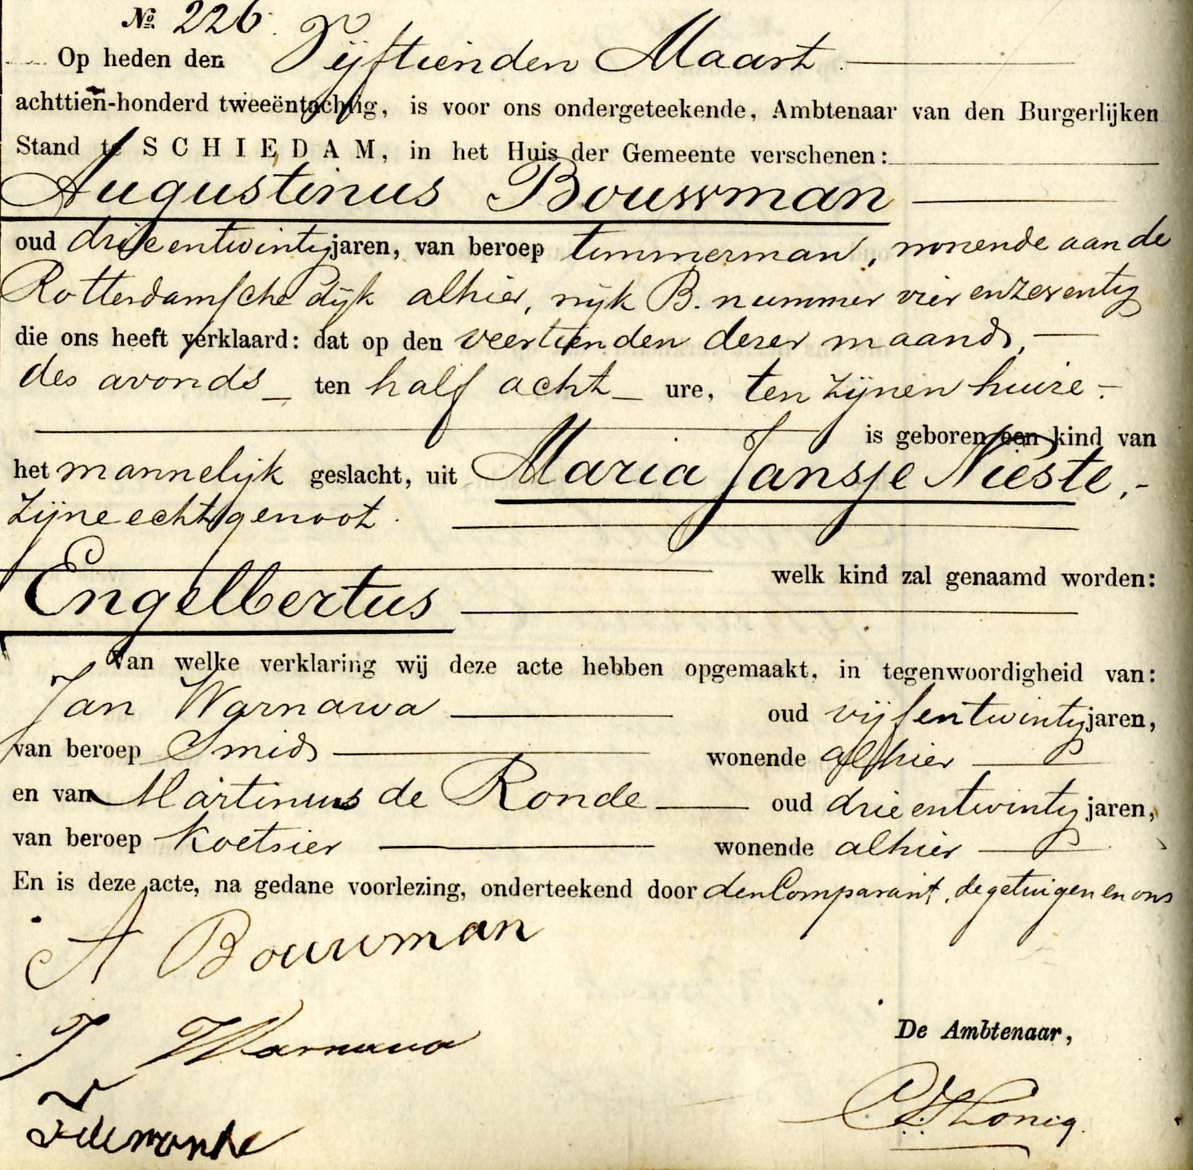 № 226.
Op heden den Vijftienden Maart
achttien-honderd tweeëntachtig, is voor ons ondergeteekende, Ambtenaar van den Burgerlijken
Stand te SCHIEDAM, in het Huis der Gemeente verschenen:
Augustinus Bouwman
oud drieentwintig jaren, van beroep timmerman, wonende aan de
Rotterdamsche dijk alhier, wijk B. nummer vier en zeventig
die ons heeft verklaard: dat op den veertienden dezer maand,
des avonds ten half acht ure, ten zijnen huize
is geboren een kind van
het mannelijk geslacht, uit Maria Jansje Nieste,
zijne echtgenoot.
welk kind zal genaamd worden:
Engelbertus
Van welke verklaring wij deze acte hebben opgemaakt, in tegenwoordigheid van:
Jan Warnawa oud vijfentwintig jaren,
van beroep Smid wonende alhier
en van Martinus de Ronde oud drieentwintig jaren,
van beroep koetsier wonende alhier
En is deze acte, na gedane voorlezing, onderteekend door den Comparant, de getuigen en ons
A Bouwman
J Warnawa
De Ambtenaar,